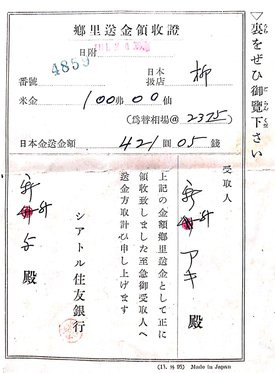 ▽裏をぜひ御覽下さい
鄕里送金領收證
日附
番號 4859
日本扱店 柳
米金 100弗00仙
(爲替相場@ 23 7/5)
日本金送金額 421圓05錢
受取人
アキ 殿
上記の金額鄕里送金として正に
領收致しました至急御受取人へ
送金方取計ひ申し上げます
シアトル住友銀行
殿
(13. 8. 95) Made in Japan